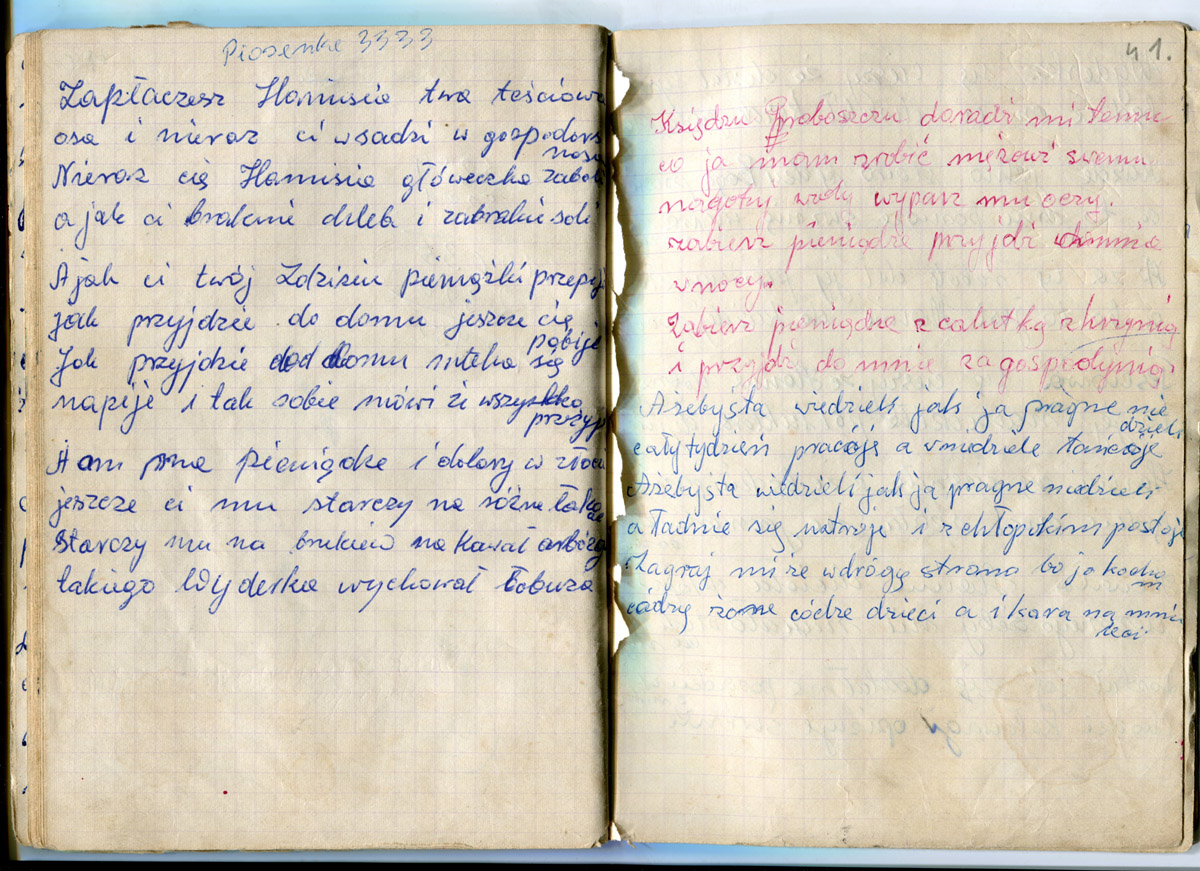 Piosenka 3333
Zapłaczesz Hanusia twa teściowa
osa i nieraz ci wsadzi w gospodars
nosa
Nieraz cię Hanusia główeczka zaboli
a jak ci braknie chleb i zabraknie soli
A jak ci twój Zdzisiu pieniążki przepij
jak przyjdzie do domu jeszcze cię
pobije
Jak przyjdzie do domu mleka się
napije i tak sobie mówi że wszystko
przeżyje
A on ma pieniądze i dolary w złocie
jeszcze ci mu starczy na różne
Starczy mu na
takiego wychował łobuza
41.
Księdzu Proboszczu doradź mi temu
co ja mam zrobić mężowi swemu
nagotuj wody wyparz mu oczy.
zabierz pieniądze przyjdź do mnie
w nocy.
Zabierz pieniądze z calutką skrzynią
i przyjdź do mnie za gospodynią
Ażebysta wiedzieli jak ja pragne nie
dzieli
cały tydzień pracóje a w niedziele tańcóje
Ażebysta wiedzieli jak ja pragne niedzieli
a ładnie się ustroje i z chłopokim postoje
Zagraj mi ze wdrógą strona bo ja kocha
m
códzą żone códze dzieci a i kara na mnie
leci